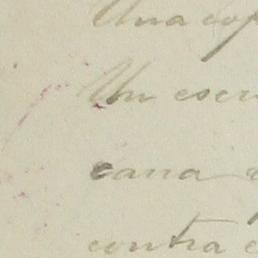 Una cop
Un escri
cana
contra